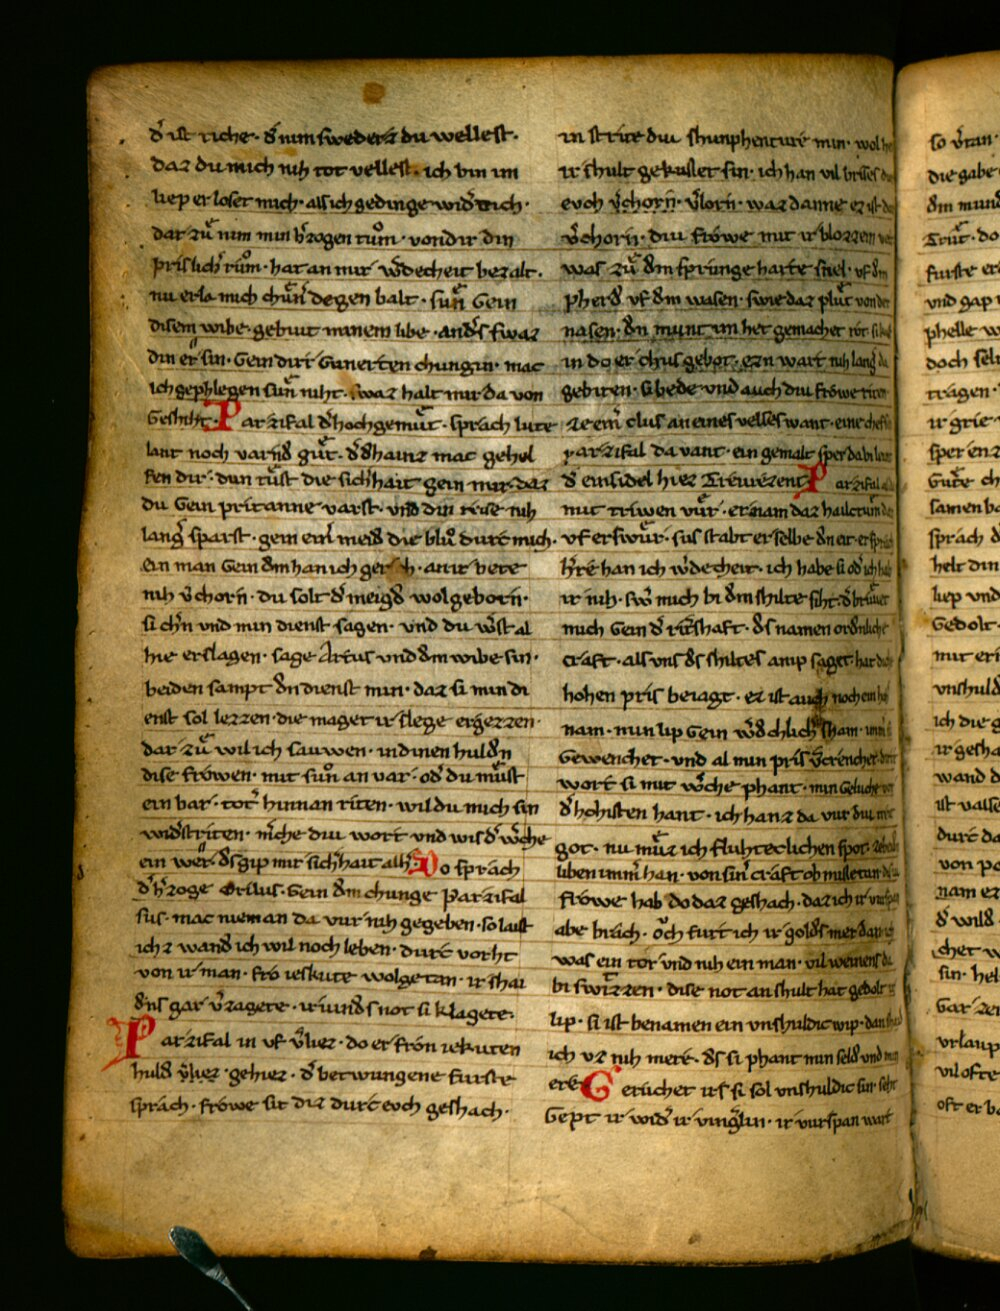 d͛ ist riche. d͛ nim swederz du wellest.
daz du mich niht tot vellest. ich bin im
liep er loset mich. als ich gedinge wid͛ mich.
dar zuͦ nim min h͛zogen tuͦm. von dir din
prislich ruͦm. hat an mir w͛decheit bezalt.
nu erla mich chuͤn degen balt. suͤn gein
disem wibe. gebiut minem libe. and͛s swaz
din er sin. Gein dirr Gunerten chungin. mac
ich gephlegen suͤn niht. swaz halt mir da von
Geshiht. Parzifal d͛ hochgemuͤt. sprach lute
lant noch varnd͛ guͤt. d͛ d͛hainz mac gehel
fen dir. dun tuͤst die sich͛hait gein mir. daz
du Gein pritanne varst. vnd din reise niht
lang͛ sparst. gein ein͛ meid͛ die bluͦ durc mich.
ein man Gein dem han ich ger ch. an ir bete
niht v͛chorn. du solt d͛ meigd͛ wolgeborn.
sich͛n vnd min dienst sagen. vnd du w͛st al
hie erslagen. sage Artus vnd dem wibe sin.
beiden sampt den dienst min. daz si min di
enst sol lezzen. die maget ir slege ergezzen.
dar zuͤ wil ich sauwen. in dinen hulden
dise frowen. mit suͦn an var. od͛ du muͤst
ein bar. tot͛ hinnan riten. wil du mich sin
wid͛striten. m͛che diu wort vnd wis d͛ w͛che
ein wer. des gip mir sich͛hait alh͛. Do sprach
d͛ h͛zoge Orilus. Gein dem chunge Parzifal
sus. mac nieman da vur niht gegeben. so laist
ichz wand͛ ich wil noch leben. durc vorht
von ir man. fro ieskute wolgetan. ir shai
dens gar v͛zagete. ir iunds not si klagete.
Parzifal in vf v͛liez. do er fron ieskuten
huld͛ v͛liez gehiez. d͛ betwungene furste
sprach. frowe sit diz durc evch geshach.
in strite diu shunphenture min. wol he
ir shult gekusset sin. ich han vil brises
evch v͛chorn. v͛lorn. waz danne ez ist
v͛chorn. diu frowe mit ir blozzem
was zuͤ dem sprunge harte snel. vf dem
pherd͛ vf dem wasen. swie daz pluͤt von der
nasen. den munt im het gemachet rot si
in do er chus gebot. ezn wart niht lang͛ da
gebiten. si bede vnd auch diu frowe riten
ze ein͛ clus an eines velses want. eine
Parzifal da vant. ein gemalt sper da bi
d͛ einsidel hiez Treurezent. Parzifal
mit triwen vuͤr. er nam daz hailctuͤm
vf er swuͤr. sus stabt er selbe den eit. er sprach
h͛re han ich w͛decheit. ich habe si od͛ ich
ir niht. sw͛ mich bi dem shilte siht. d͛ bruͤuet
mich Gein d͛ rit͛shaft. des namen ordenliche
craft. als vns des shiltes amp saget. hat
hohen pris beiagt. ez ist auch noch ein
nam. min lip Gein w͛chlich͛ sham.
Gewenchet. vnd al min pris v͛crenchet
wort si mit w͛che phant. min Geluche
d͛ hohisten hant. ich hanz da vur diu
got. nu muͤz ich fluhteclichen spot.
liben imm͛ han. von sin͛ craft ob missetan
frowe hab do daz geshach. daz ich ir
abe brach. och furt ich ir goldes mer dan
was ein tor vnd niht ein man. vil weinens
bi swizzen. dise not an shult hat gedolt
lip. si ist benamen ein vnshuldic wip.
ich vz niht mere. des si phant min seld vnd min
ere. Geruchet irs si sol vnshuldic sin. seht
Gept ir wid͛ ir vingerlin. ir vurspan wart
so v͛tan
die gabe
dem mund
Truͤt. do
furste er
vnd gap
phelle w
doch sel
tragen.
ir grie
sper enz
Guͤte ch
samen
sprach
helt din
liep vnd
Gedolt
mit eri
vnshuld
ich die g
ir gesha
wand
ist valse
durc da
von po
nam ez
d͛ wild
chet w
sin. hel
Gar zen
vrlaup
vil ofte
oft er